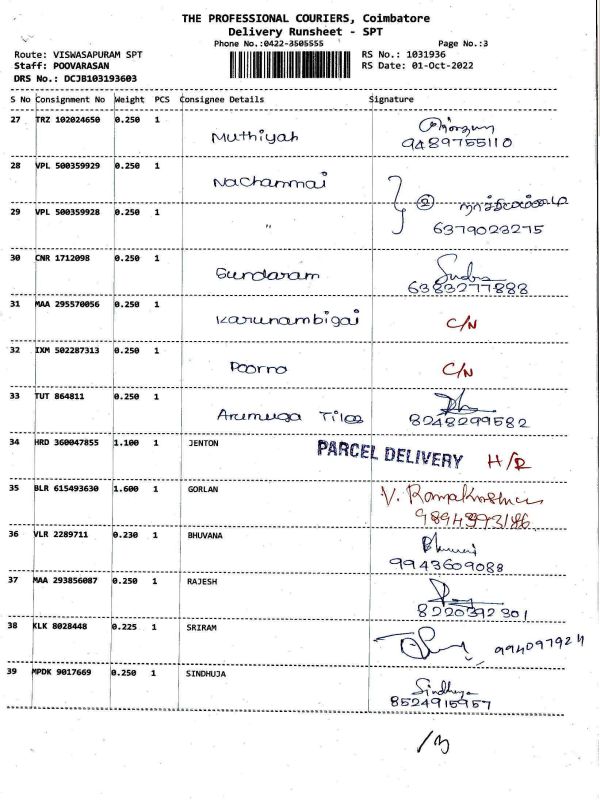 THE PROFESSIONAL COURIERS, Coimbatore
Delivery Runsheet - SPT
Phone No.:0422-3505555 Page No.:3
Route: VISWASAPURAM SPT RS No.: 1031936
Staff: POOVARASAN RS Date: 01-Oct-2022
DRS No.: DCJB103193603
S No Consignment No Weight PCS Consignee Details Signature
27 TRZ 102024650 0.250 1
Muthiyah 9489755110
28 VPL 500359929 0.250 1
Nachammai
2
29 VPL 500359928 0.250 1
" 6379023275
30 CNR 1712098 0.250 1
Sundaram 6383277888
31 MAA 295570056 0.250 1
Karunambigai C/N
32 IXM 502287313 0.250 1
Poorna C/N
33 TUT 864811 0.250 1
Arumuga Tiles 8248299582
34 HRD 360047855 1.100 1 JENTON PARCEL DELIVERY H/R
35 BLR 615493630 1.600 1 GORLAN V. Ramakrishnan
36 VLR 2289711 0.230 1 BHUVANA
9943609088
37 MAA 293856087 0.250 1 RAJESH
8220392301
38 KLK 8028448 0.225 1 SRIRAM
39 MPDK 9017669 0.250 1 SINDHUJA Sindhuja
8524915957
/13